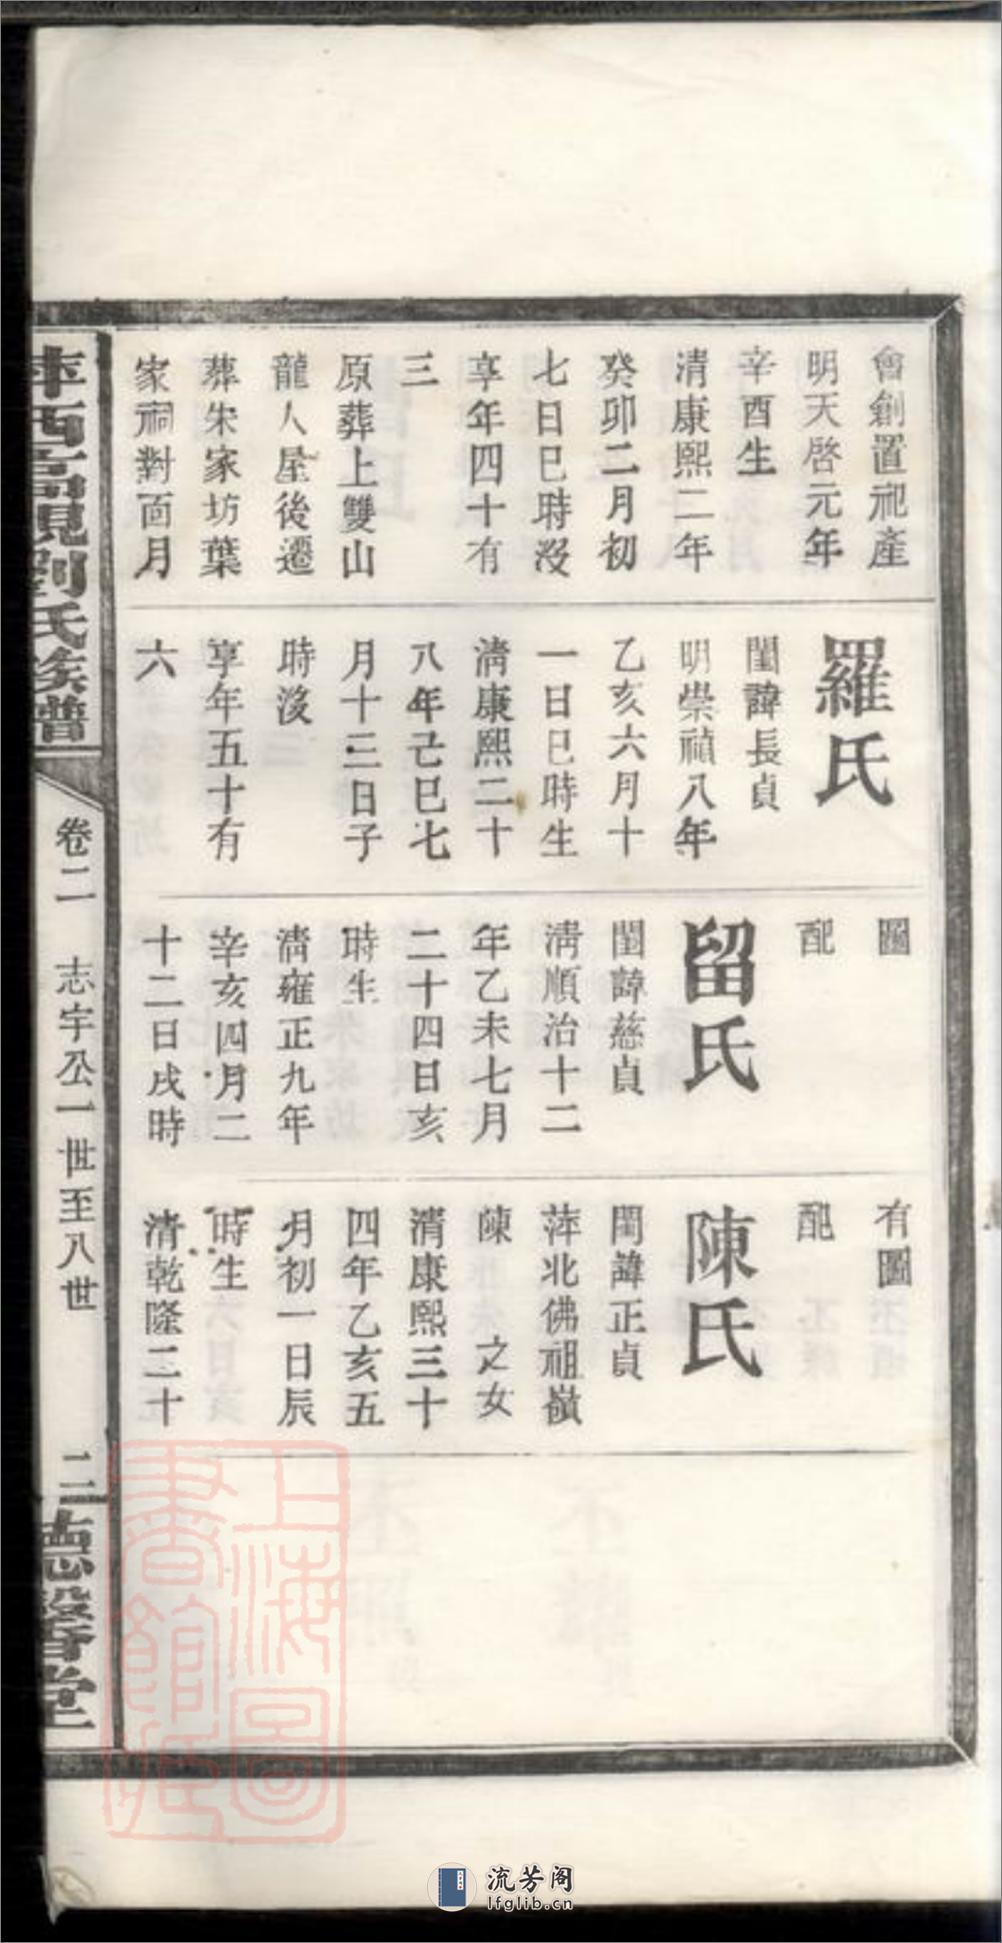 會創置祀產
明天啓元年
辛酉生
清康熙二年
癸卯二月初
七日巳時沒
享年四十有
三
原葬上雙山
龍人屋後遷
葬朱家坊葉
家祠對面月
羅氏
閨諱長貞
明崇禎八年
乙亥六月十
一日巳時生
清康熙二十
八年己巳七
月十三日子
時沒
享年五十有
六
圖
配
留氏
閨諱慈貞
清順治十二
年乙未七月
二十四日亥
時生
清雍正九年
辛亥四月二
十二日戌時
有圖
配
陳氏
閨諱正貞
萍北佛祖嶺
陳 之女
清康熙三十
四年乙亥五
月初一日辰
時生
清乾隆二十
萍西高視劉氏族譜
卷二 志宇公一世至八世
二 德馨堂
上海圖書館藏
流芳阁
lfglib.cn